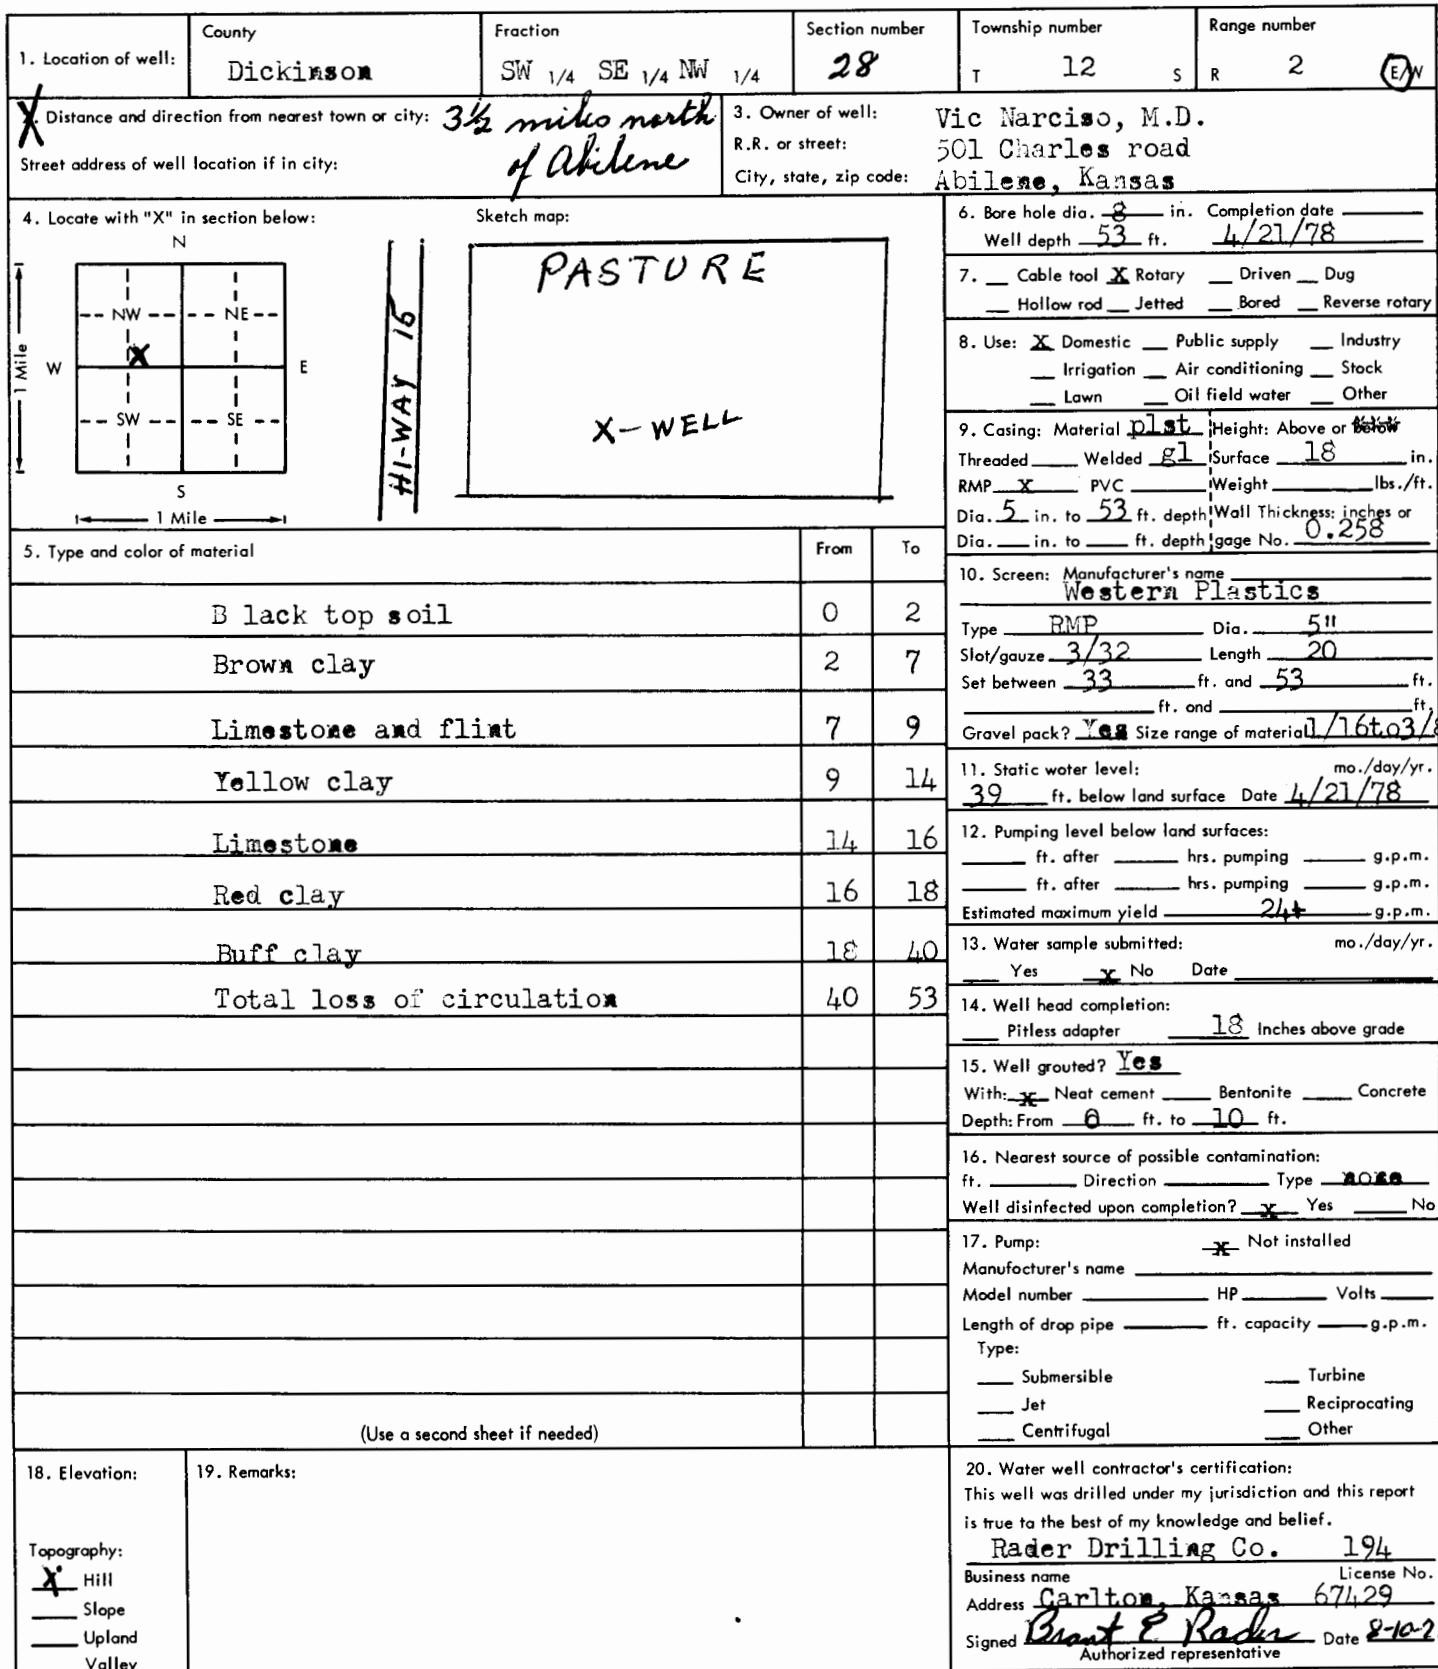 1. Location of well:
County
Dickinson
Fraction
SW 1/4 SE 1/4 NW 1/4
Section number
28
Township number
T 12 S
Range number
R 2 E/W
Distance and direction from nearest town or city: 3½ miles north
of Abilene
Street address of well location if in city:
3. Owner of well: Vic Narciso, M.D.
R.R. or street: 501 Charles road
City, state, zip code: Abilene, Kansas
4. Locate with "X" in section below:
N
NW NE
X
W E
SW SE
S
1 Mile
1 Mile
Sketch map:
HI-WAY 15
PASTURE
X-WELL
5. Type and color of material From To
B lack top soil 0 2
Brown clay 2 7
Limestone and flint 7 9
Yellow clay 9 14
Limestone 14 16
Red clay 16 18
Buff clay 18 40
Total loss of circulation 40 53
(Use a second sheet if needed)
6. Bore hole dia. 8 in. Completion date
Well depth 53 ft. 4/21/78
7. __ Cable tool X Rotary __ Driven __ Dug
__ Hollow rod __ Jetted __ Bored __ Reverse rotary
8. Use: X Domestic __ Public supply __ Industry
__ Irrigation __ Air conditioning __ Stock
__ Lawn __ Oil field water __ Other
9. Casing: Material plst Height: Above or below
Threaded ___ Welded gl Surface 18 in.
RMP x PVC ___ Weight ___ lbs./ft.
Dia. 5 in. to 53 ft. depth Wall Thickness: inches or
Dia. ___ in. to ___ ft. depth gage No. 0.258
10. Screen: Manufacturer's name
Western Plastics
Type RMP Dia. 5"
Slot/gauze 3/32 Length 20
Set between 33 ft. and 53 ft.
___ ft. and ___ ft.
Gravel pack? Yes Size range of material 1/16to3/8
11. Static water level: mo./day/yr.
39 ft. below land surface Date 4/21/78
12. Pumping level below land surfaces:
___ ft. after ___ hrs. pumping ___ g.p.m.
___ ft. after ___ hrs. pumping ___ g.p.m.
Estimated maximum yield 24+ g.p.m.
13. Water sample submitted: mo./day/yr.
___ Yes x No Date ___
14. Well head completion:
___ Pitless adapter 18 Inches above grade
15. Well grouted? Yes
With: x Neat cement ___ Bentonite ___ Concrete
Depth: From 0 ft. to 10 ft.
16. Nearest source of possible contamination:
ft. ___ Direction ___ Type none
Well disinfected upon completion? x Yes ___ No
17. Pump: x Not installed
Manufacturer's name ___
Model number ___ HP ___ Volts ___
Length of drop pipe ___ ft. capacity ___ g.p.m.
Type:
___ Submersible ___ Turbine
___ Jet ___ Reciprocating
___ Centrifugal ___ Other
18. Elevation:
Topography:
X Hill
___ Slope
___ Upland
Valley
19. Remarks:
20. Water well contractor's certification:
This well was drilled under my jurisdiction and this report
is true to the best of my knowledge and belief.
Rader Drilling Co. 194
Business name License No.
Address Carlton, Kansas 67429
Signed Brant E Rader Date 8-10-7
Authorized representative